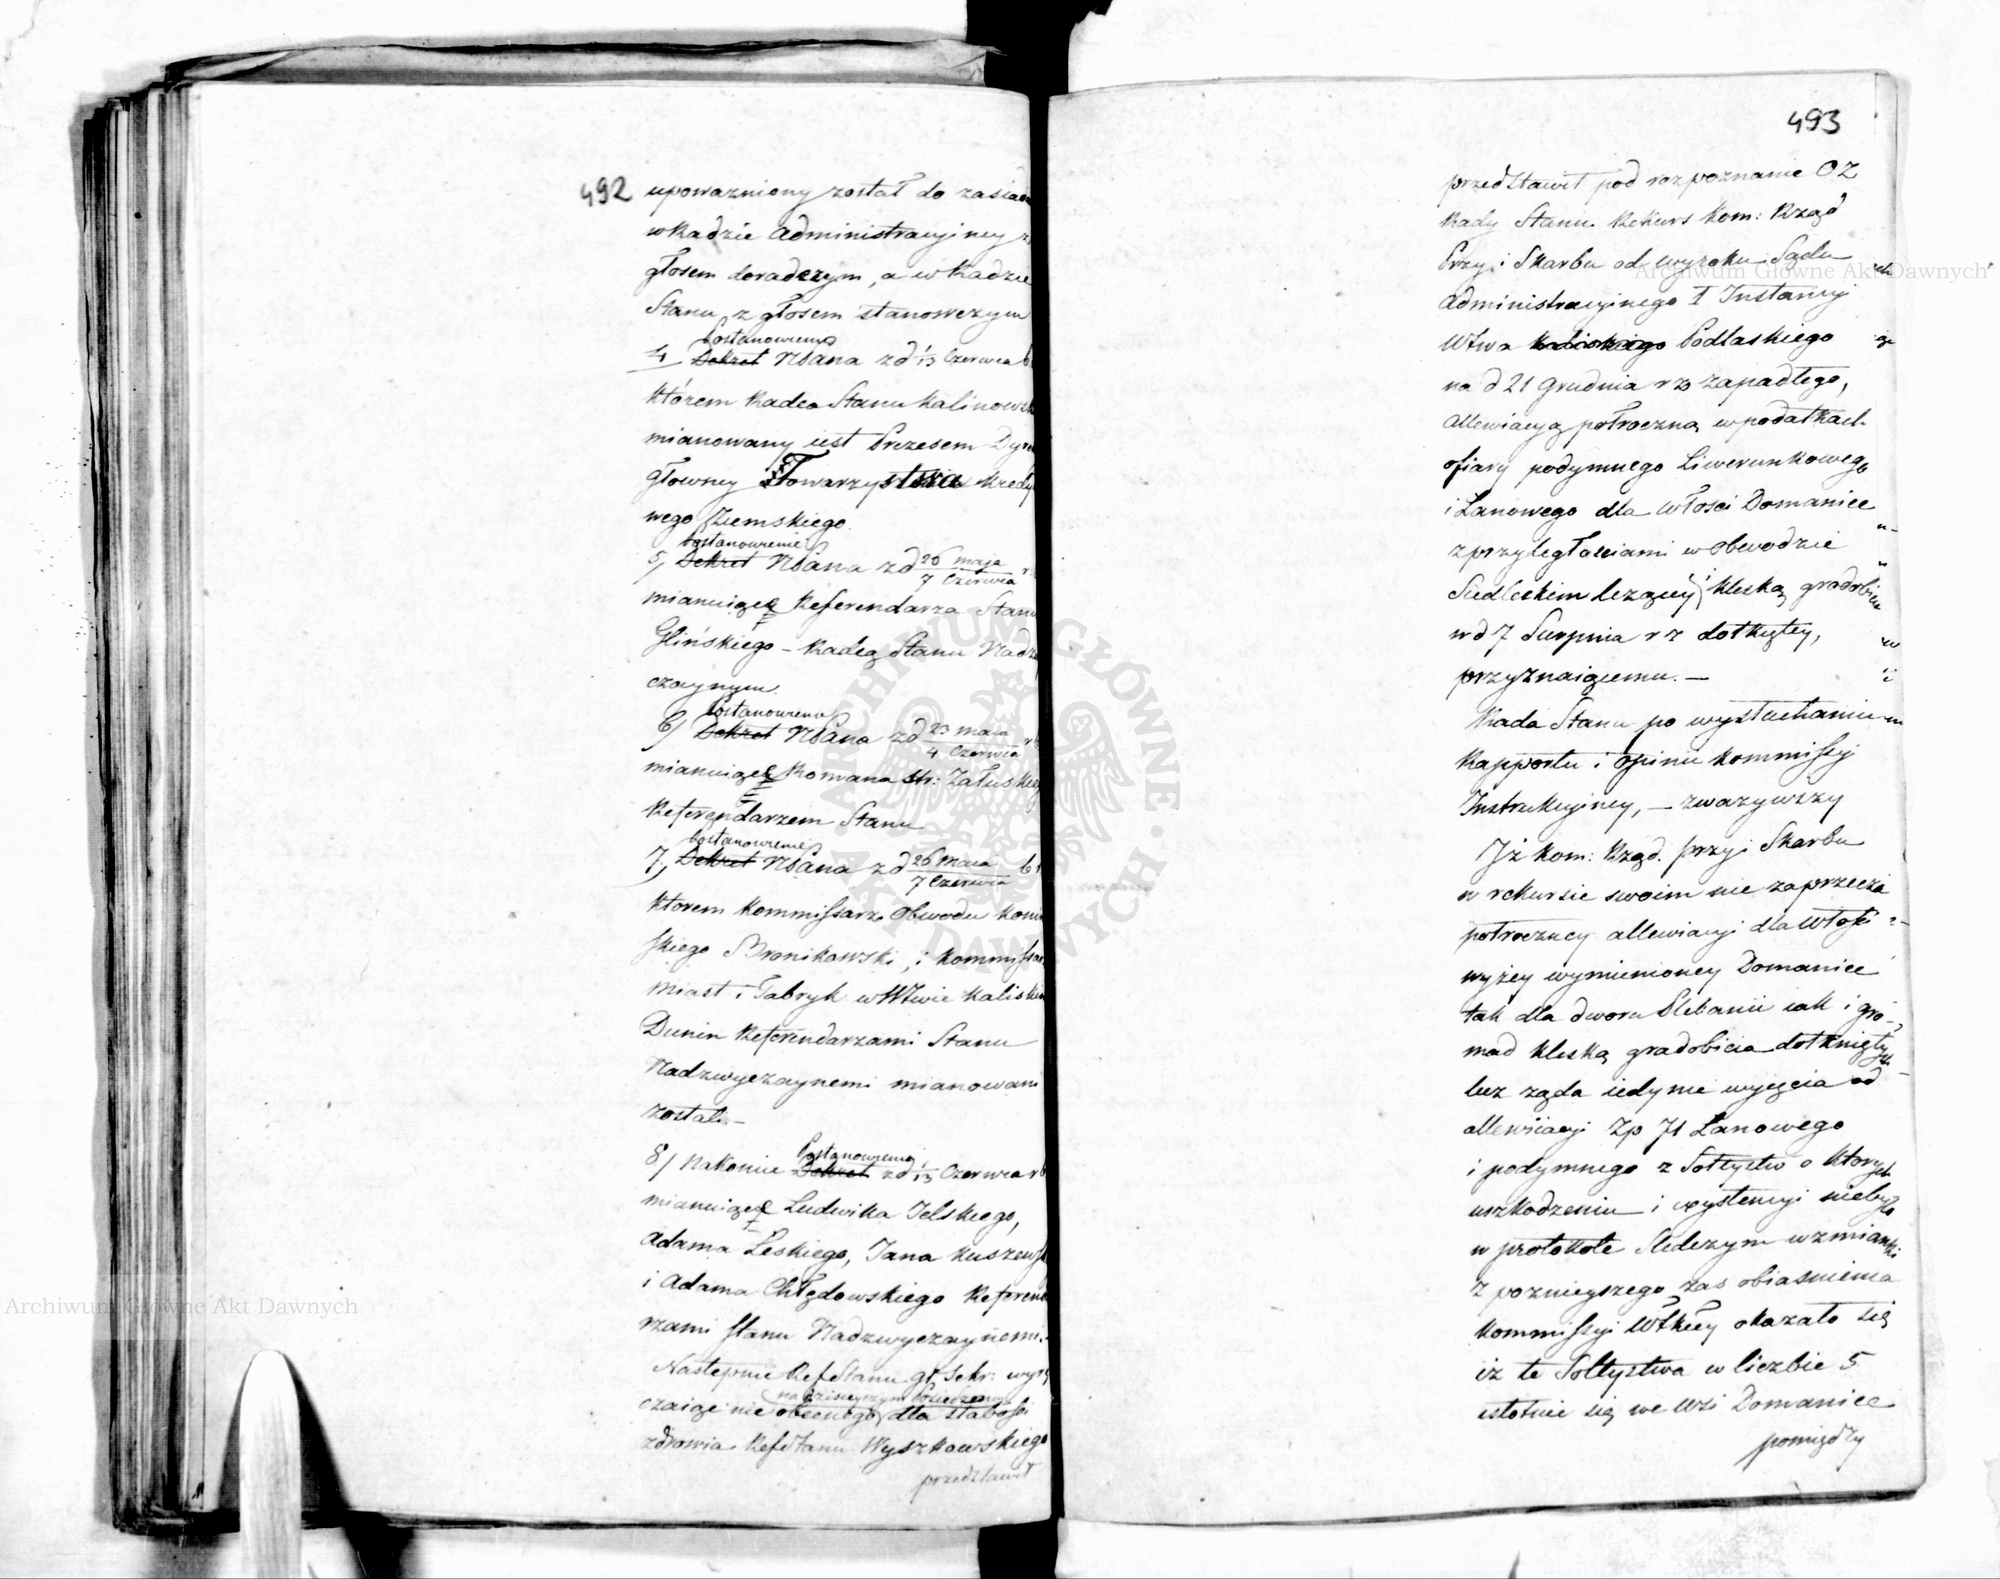 492
upoważniony został do zasiada
w Radzie Administracyiney z
głosem doradczym, a w Radzie
Stanu z głosem stanowczym
Postanowienie
4 Dekret NPana z d 1/13 Czerwca b
którem Radca Stanu Kalinowsk
mianowany iest Prezesem Dyre
głowney Towarzystwa Kredy
wego Ziemskiego.
Postanowienie
5/ Dekret NPana z d 26 maja / 7 Czerwca r
mianuiące Referendarza Stanu
Glińskiego – Radcą Stanu Nadz
czaynym.
Postanowienie
6/ Dekret NPana z d 23 maia / 4 Czerwca r
mianuiące Romana hr: Załuskieg
Referendarzem Stanu
Postanowienie
7/ Dekret NPana z d 26 Maia / 7 Czerwca b r
ktorem Kommissarz Obwodu Koni
skiego Bronikowski, i Kommissar
Miast i Fabryk w Wtwie Kaliskim
Dunin Referendarzami Stanu
Nadzwyczaynemi mianowani
zostali –
Postanowienie
8/ Nakoniec Dekret z d 1/13 Czerwca r b
mianuiące Ludwika Jelskiego,
Adama Łeskiego, Jana Kuszews
i Adama Chłędowskiego Referend
rzami Stanu Nadzwyczaynemi.
Następnie RefStanu gł. Sekr: wyrę
na dzisieyszym Posiedzeniu
czaiąc nie obecnego dla słabości
zdrowia RefStanu Wyszkowskiego
przedstawił
493
przedstawił pod rozpoznanie OZ
Rady Stanu Rekurs Kom: Rząd
Przy: i Skarbu od wyroku Sądu
Administracyinego I Instancyi
Wtwa Podlaskiego
na d 21 Grudnia r z zapadłego,
allewiacyą potroczną w podatkach
ofiary podymnego Liwerunkowego
i Łanowego dla Włości Domanice
z przyległościami w Obwodzie
Siedleckim leżącey, klęską gradobicia
w d 7 Sierpnia r z dotkniętey,
przyznaiącemu. –
Rada Stanu po wysłuchaniu
Rapportu i opinii Kommissyi
Instrukcyiney, – zważywszy
Iż Kom: Rząd. przy: i Skarbu
w rekursie swoim nie zaprzecza
potroczney allewiacyi dla Włości
wyżey wymienioney Domanice
tak dla dworu Plebanii iak i gro-
mad klęską gradobicia dotkniętych
lecz żąda iedynie wyięcia od
allewiacyi Zp 71 Łanowego
i podymnego z Sołtystw o ktorych
uszkodzeniu i exystencyi niebyło
w protokole Śledczym wzmianki
z poznieyszego zas obiaśnienia
Kommissyi Wtkiey okazało się
iż te Sołtystwa w liczbie 5
istotnie się we Wsi Domanice
pomiędzy
Archiwum Główne Akt Dawnych
Archiwum Główne Akt Dawnych
ARCHIWUM GŁÓWNE AKT DAWNYCH